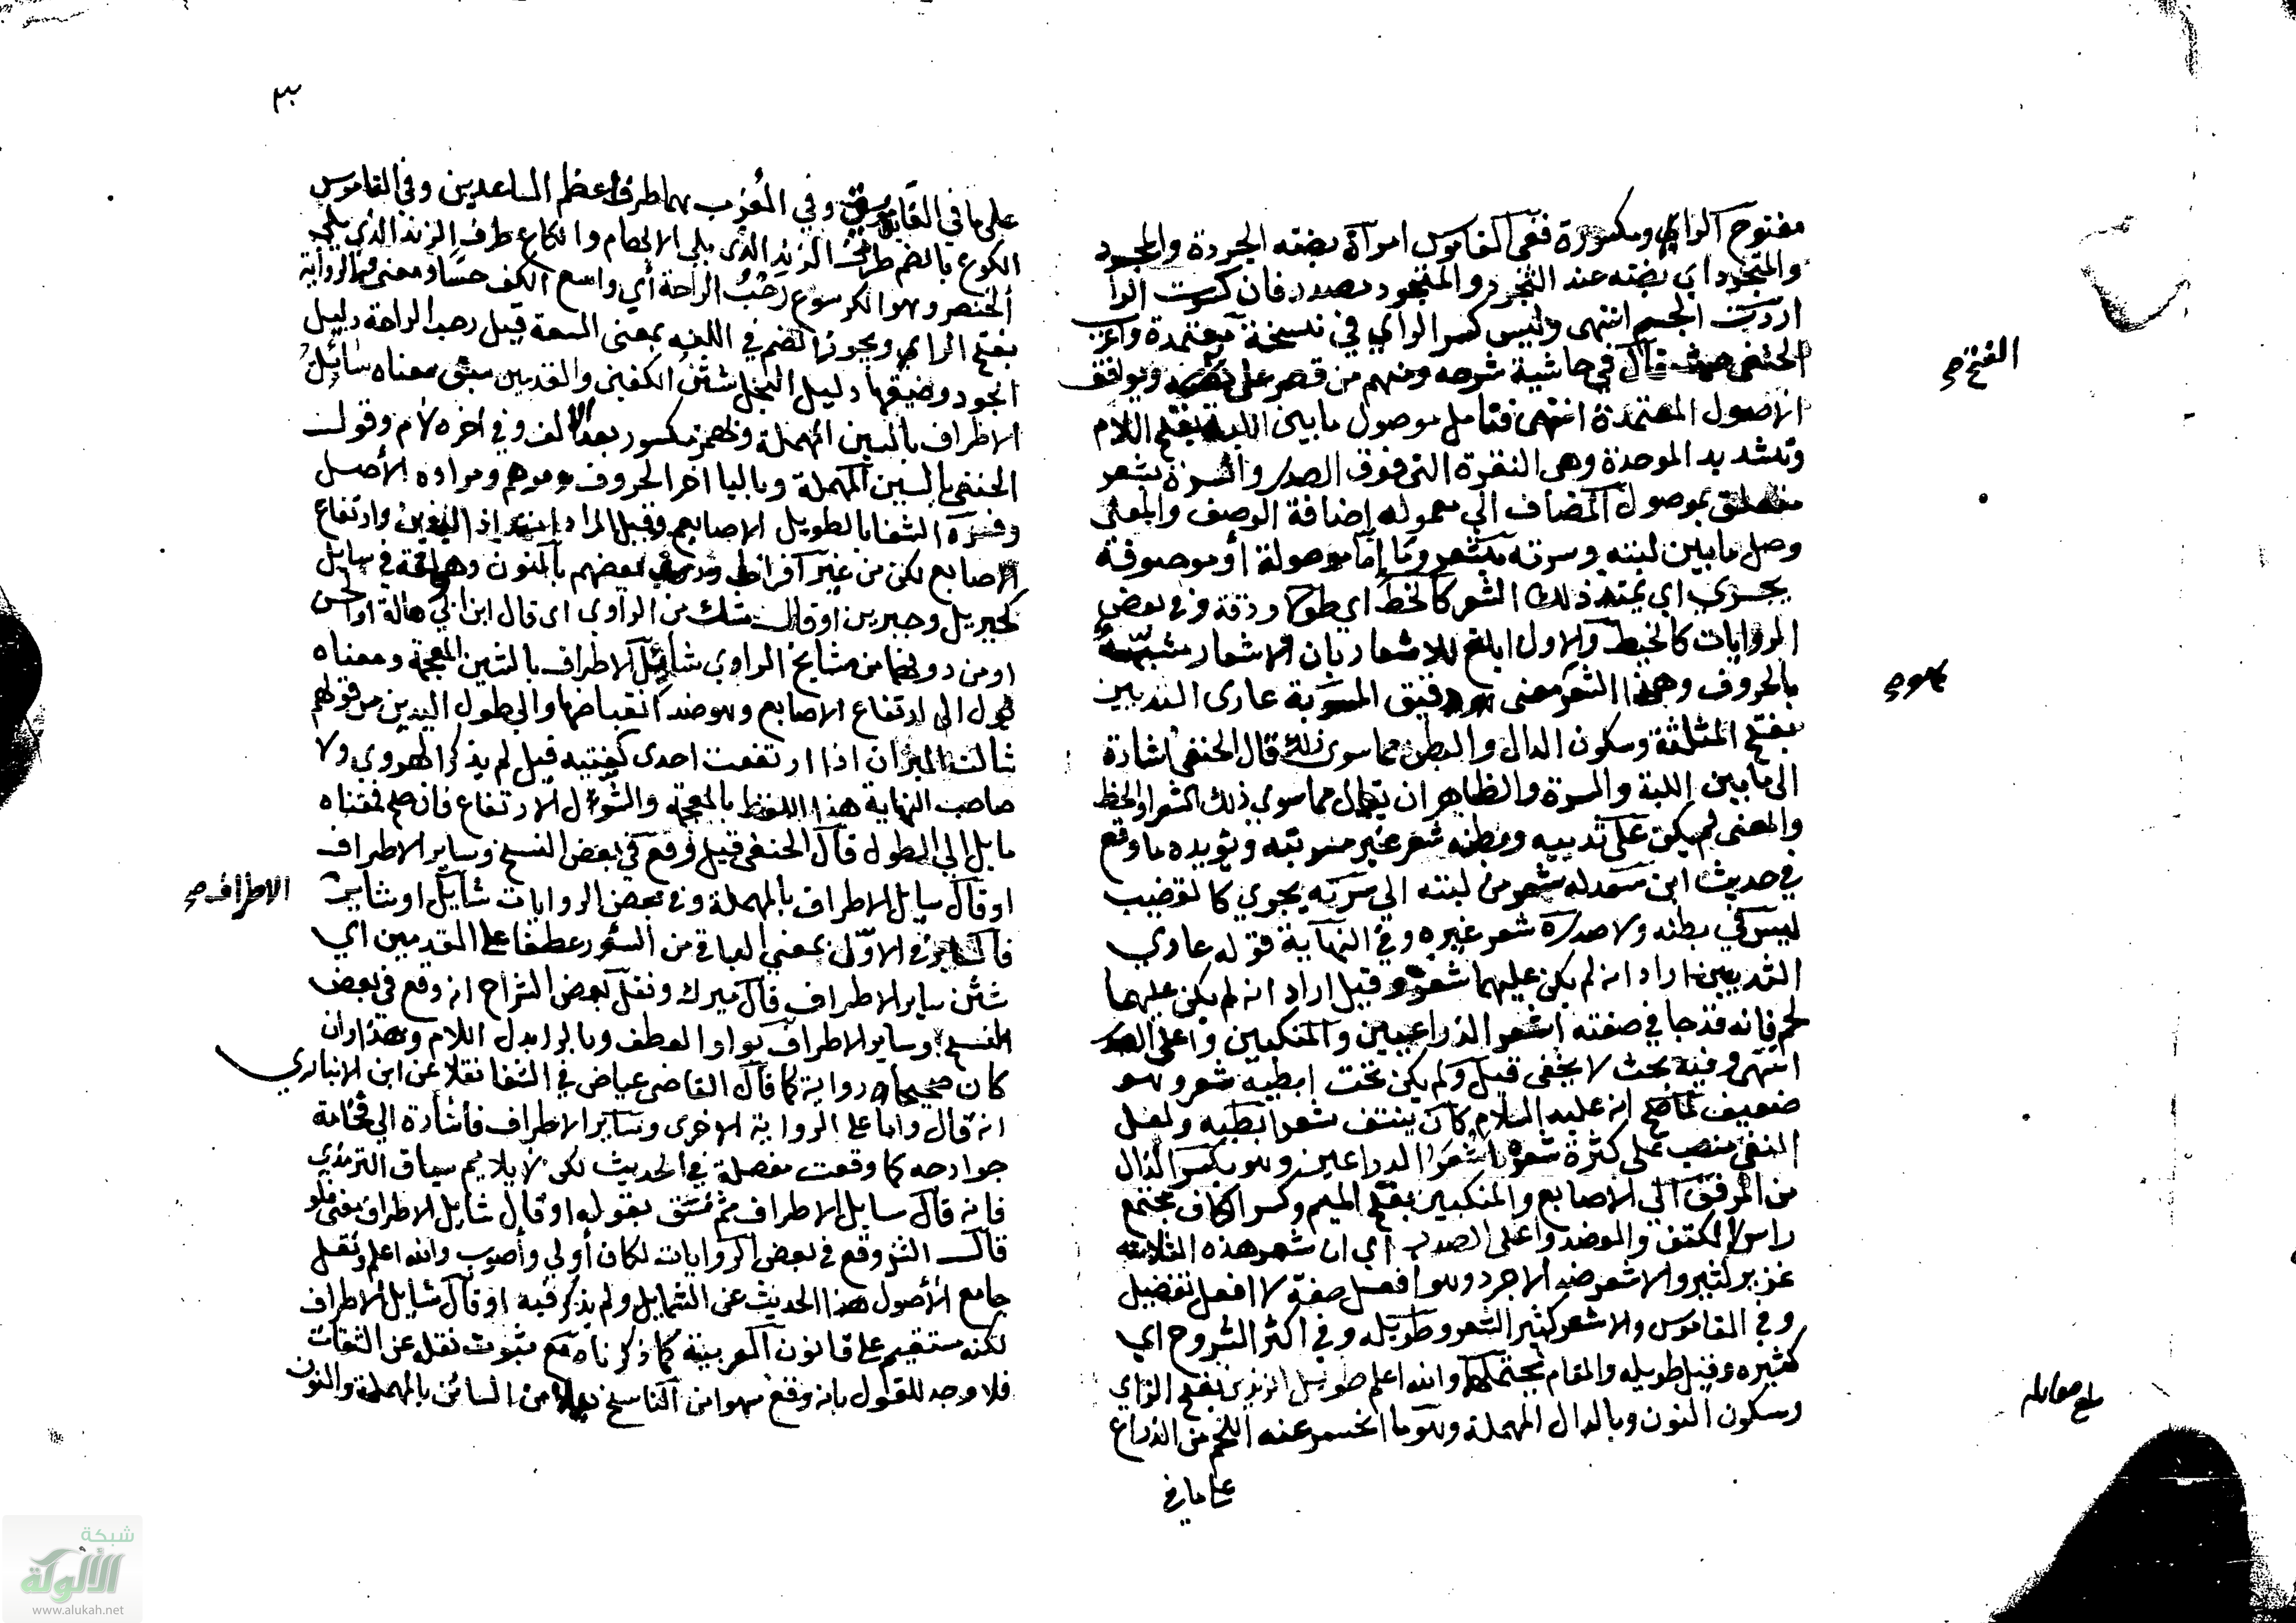 مفتوح الراي ومكسورة ففي القاموس امرأة بضته الجردة والمجرد
والمتجرد اي بضته عند التجرد والمتجرد مصدر فان كسرت الرا
اردت الجسم انتهى وليس كسر الراي في نسخة معتمدة واغرب
الحنفي حيث قال في حاشية شرحه ومنهم من قصر على ويوافقه
الاصول المعتمدة انتهى فتامل موصول ما بين اللبة بفتح اللام
وتشديد الموحدة وهي النقرة التي فوق الصدر والسرة بشعر
متعلق بموصول المضاف الى معموله اضافة الوصف والمعنى
وصل ما بين لبته وسرته بشعر وما إمّا موصولة أو موصوفة
يجري اي يمتد ذلك الشعر كالخط اي طولا ودقة وفي بعض
الروايات كالخيط والاول ابلغ للاشعار بان الاشعار مشبّهة
بالحروف وهذا الشعر معنى دقيق المسربة عاري الثديين
بفتح المثلثة وسكون الدال والبطن مما سوى ذلك قال الحنفي اشارة
الى ما بين اللبة والسرة والظاهر ان يقال مما سوي ذلك الشعر او الخط
والمعنى لم يكن على ثدييه وبطنه شعر غير مسربته ويؤيده ما وقع
في حديث ابن سعد له شعر من لبته الي سرته يجري كالقضيب
ليس في بطنه ولا صدره شعر غيره وفي النهاية قوله عاري
الثديين اراد انه لم يكن عليهما شعر وقيل اراد انه لم يكن عليهما
لحم فانه قد جا في صفته اشعر الذراعين والمنكبين واعلى الصدر
انتهى وفيه بحث لا يخفى قيل ولم يكن تحت ابطيه شعر وهو
ضعيف لما صح انه عليه السلام كان ينتف شعر ابطيه ولعل
النفي منصب على كثرة شعره اشعر الذراعين وهو بكسر الذال
من المرفق الى الاصابع والمنكبين بفتح الميم وكسر الكاف مجتمع
راس الكتف والعضد واعلى الصدر أي ان شعر هذه الثلاثة
غزير كثير والاشعر ضد الاجرد وهو افعل صفة لا افعل تفضيل
وفي القاموس والاشعر كثير الشعر وطويله وفي اكثر الشروح اي
كثيره وقيل طويله والمقام يحتملهما والله اعلم طويل الزندين بفتح الزاي
وسكون النون وبالدال المهملة وهو ما انحسر عنه اللحم من الذراع
على ما في
الفتح صح
بلغ مقابله
٣
على ما في القاموس وفي المُغرب هما طرفا عظم الساعدين وفي القاموس
الكوع بالضم طرف الزند الذي يلي الابهام والكاع طرف الزند الذي يلي
الخنصر وهو الكرسوع رَحْبُ الراحة أي واسع الكف حسّا ومعنى الرواية
بفتح الراي ويجوز الضم في اللغه بمعنى السعة قيل رحب الراحة دليل
الجود وضيقها دليل البخل شثن الكفين والقدمين سبق معناه سائِل
الاطراف بالسين المهملة وهمز مكسور بعد الالف وفي اخره لام وقول
الحنفي بالسين المهملة وباليا اخر الحروف ومراده الأصل
وفسره الشفا بالطويل الاصابع وقيل المراد امتداد اليدين وارتفاع
الاصابع لكن من غير افراط بعضهم بالنون وهي لغة في سايل
كجبريل وجبرين أوقال شك من الراوي اي قال ابن ابي هالة او الحسن
او من دونهما من مشايخ الراوي شائِل الاطراف بالشين المعجمة ومعناه
يؤل الى ارتفاع الاصابع وهو ضد انقباضها والي طول اليدين من قولهم
شالت الميزان اذا ارتفعت احدى كفتيه قيل لم يذكر الهروي ولا
صاحب النهاية هذا اللفظ بالمعجمة والشول الارتفاع فان صح فمعناه
مايل الي الطول قال الحنفي قيل وقع في بعض النسخ وساير الاطراف
او قال سايل الاطراف بالمهملة وفي بعض الروايات شايل او شاين
فالساير في الاوّل بمعنى الباقي من السُؤر عطفا على القدمين اي
شثن ساير الاطراف قال ميرك ونقل بعض الشراح انه وقع في بعض
النسخ وساير الاطراف بواو العطف وبالرا بدل اللام وهذا وان
كان صحيحا رواية كما قال القاضي عياض في الشفا نقلا عن ابن الانباري
انه قال واما على الرواية الاخرى وساير الاطراف فأشارة الي فخامة
جوارحه كما وقعت مفصلة في الحديث لكن لا يلايم سياق الترمذي
فانه قال سايل الاطراف ثم بقوله او قال شايل الاطراف
قال الذي وقع في بعض الروايات لكان أولي وأصوب والله اعلم ونقل
جامع الأصول هذا الحديث عن الشمايل ولم يذكر فيه او قال شايل الاطراف
لكنه مستقيم على قانون العربية كما ذكرناه مع ثبوت نقله عن الثقات
فلا وجه للقول بانه وقع سهوا من الناسخ بدلا من السائن بالمهملة والنون
الاطراف صح
شبكة
الألوكة
www.alukah.net